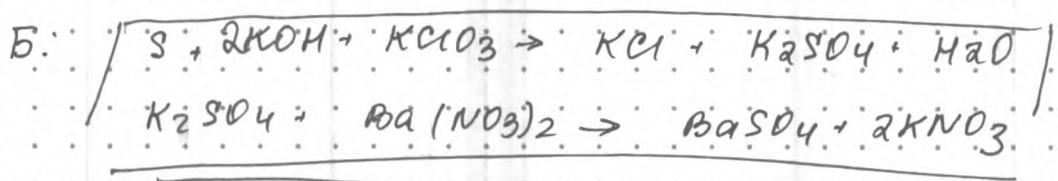 Б: S + 2KOH + KClO3 → KCl + K2SO4 + H2O
K2SO4 + Ba(NO3)2 → BaSO4 + 2KNO3